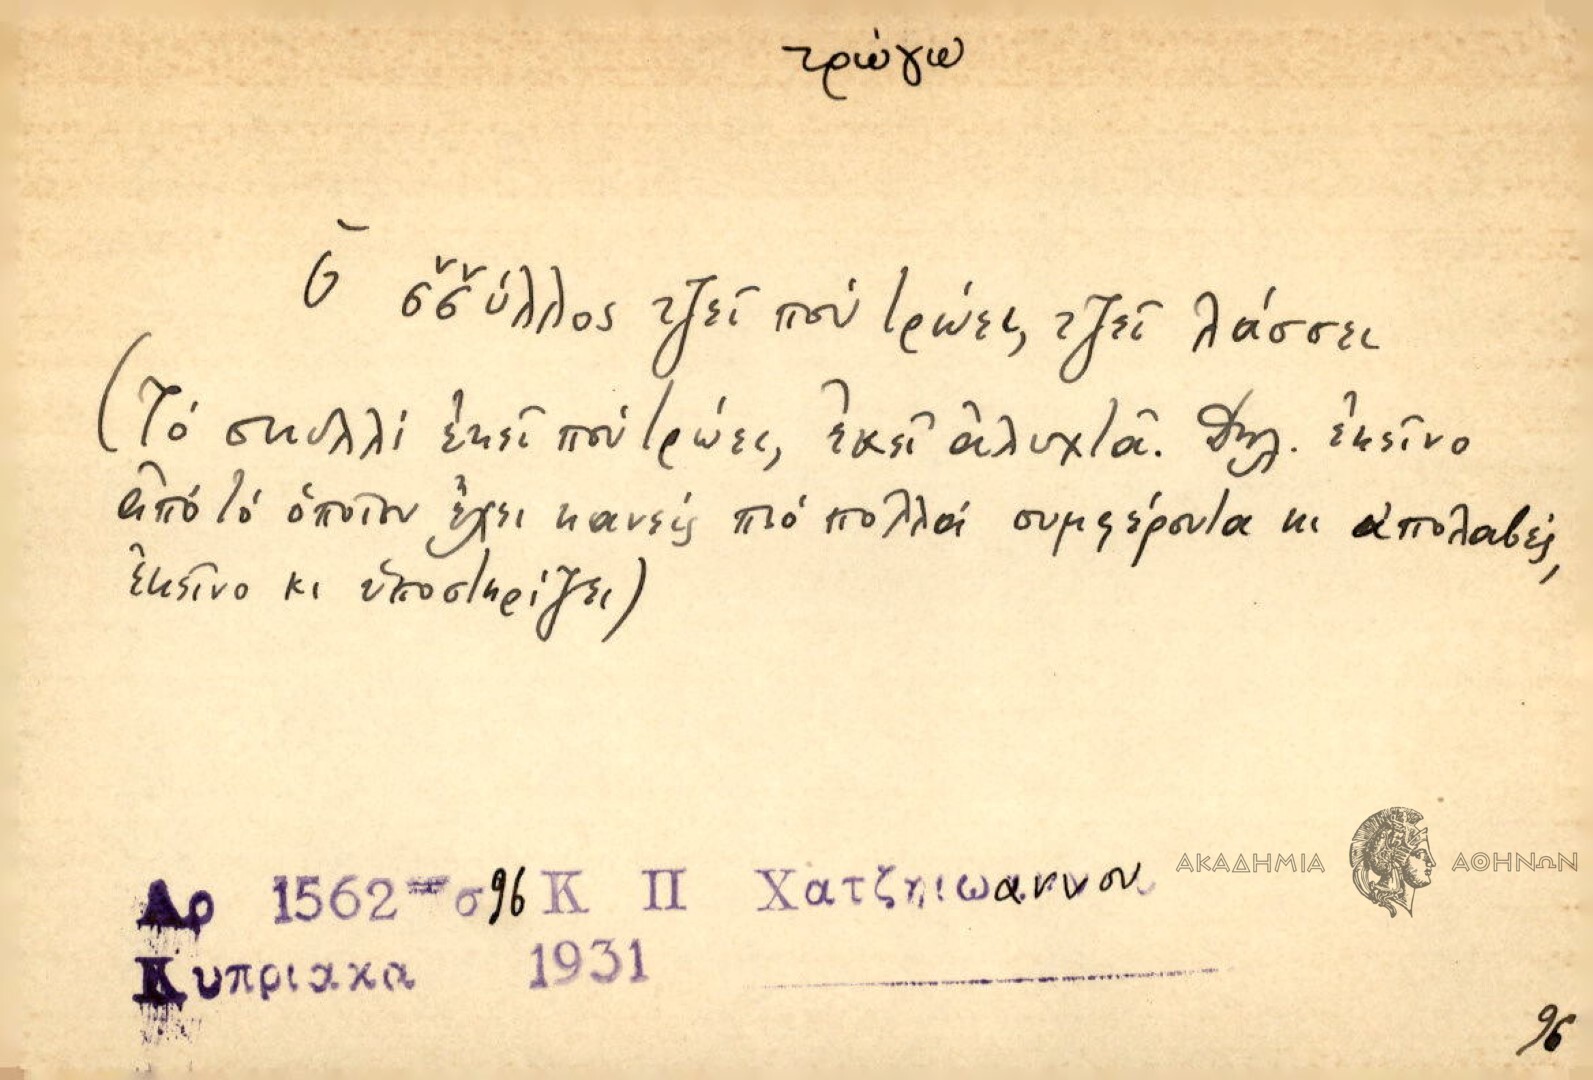 τρώγω
Ὁ σ̌σ̌ύλλος τζεῖ πού τρώει, τζεῖ λάσσει
(Τό σκυλλί ἐκεῖ πού τρώει, ἐκεῖ ἀλυχτᾶ. Δηλ. ἐκεῖνο
ἀπό τό ὁποῖον ἔχει κανείς πιό πολλά συμφέροντα κι ἀπολαβές,
ἐκεῖνο κι ὑποστηρίζει)
ΑΚΑΔΗΜΙΑ ΑΘΗΝΩΝ
Αρ 1562 σ96 Κ Π Χατζηιωαννου
Κυπριακα 1931
96